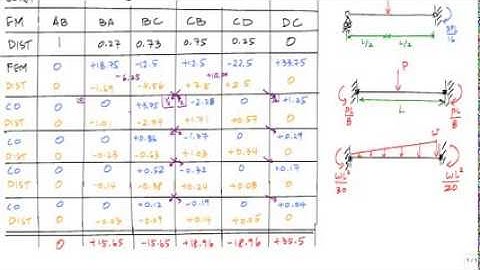 FM AB BA BC CB CD DC
DIST 1 0.27 0.73 0.75 0.25 0
FEM 0 +18.75 -12.5 +12.5 -22.5 +33.75
-6.25 +10.00
DIST 0 -1.69 -4.56 +7.5 +2.5 0
CO 0 0 +3.75 -2.28 0 +1.25
DIST 0 -1.01 -2.74 +1.71 +0.57 0
CO 0 0 +0.86 -1.37 0 +0.29
DIST 0 -0.23 -0.63 +1.03 +0.34 0
CO 0 0 +0.52 -0.32 0 +0.17
DIST 0 -0.14 -0.38 +0.24 +0.08 0
CO 0 0 +0.12 -0.19 0 +0.04
DIST 0 -0.03 -0.09 +0.14 +0.05 0
0 +15.65 -15.65 +18.96 -18.96 +35.5
L/2 L/2
3PL/16
P
PL/8 L PL/8
w
wL²/30 wL²/20